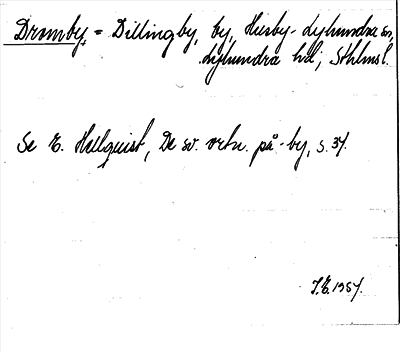 Drmby = Dillingby, by, Husby-Lyhundra sn,
Lyhundra hd, Sthlms l.
Se E. Hellquist, De sv. ortn. på -by, s. 34.
I.E. 1957.